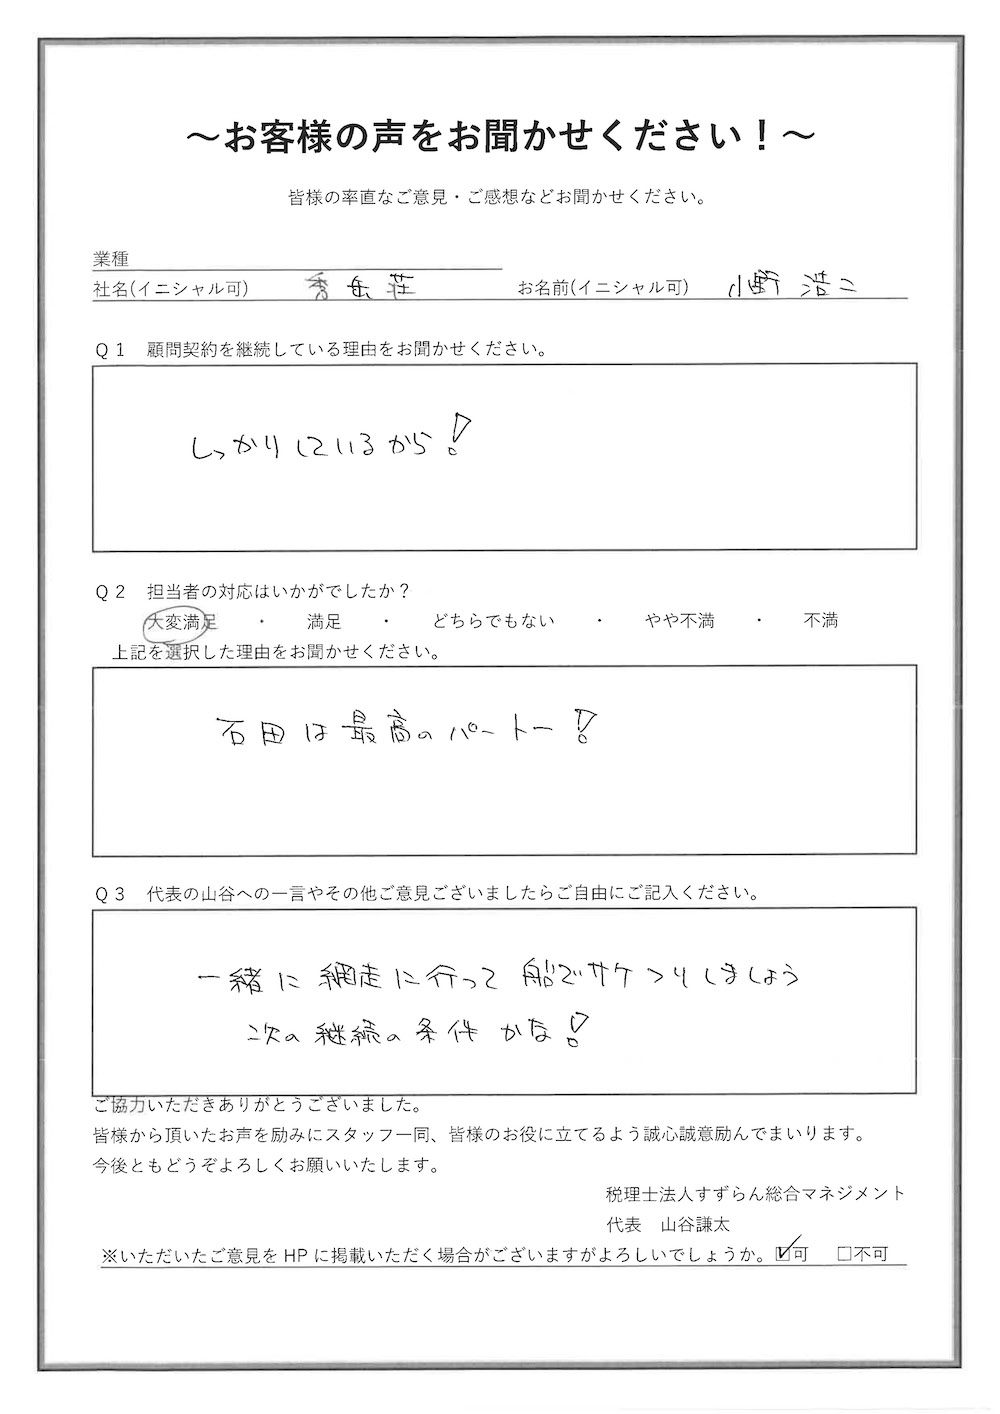 ～お客様の声をお聞かせください！～
皆様の率直なご意見・ご感想などお聞かせください。
業種
社名(イニシャル可) 秀岳荘 お名前(イニシャル可) 小野 浩二
Q1 顧問契約を継続している理由をお聞かせください。
しっかりしているから！
Q2 担当者の対応はいかがでしたか？
大変満足 ・ 満足 ・ どちらでもない ・ やや不満 ・ 不満
上記を選択した理由をお聞かせください。
石田は最高のパートー！
Q3 代表の山谷への一言やその他ご意見ございましたらご自由にご記入ください。
一緒に網走に行って船でサケつりしましょう
次の継続の条件かな！
ご協力いただきありがとうございました。
皆様から頂いたお声を励みにスタッフ一同、皆様のお役に立てるよう誠心誠意励んでまいります。
今後ともどうぞよろしくお願いいたします。
税理士法人すずらん総合マネジメント
代表 山谷謙太
※いただいたご意見をHPに掲載いただく場合がございますがよろしいでしょうか。☑可 □不可